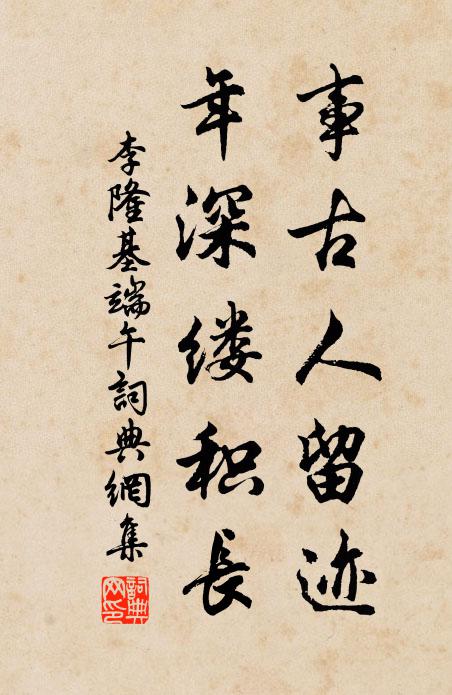 事古人留迹
年深缕积長
李隆基端午詞典網集
詞典
网印